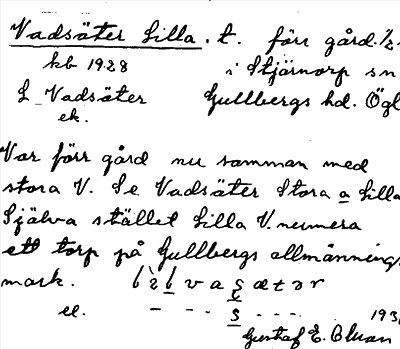 Vadsäter Lilla. t. förr gård. 1/2
kb 1928 i Stjärnorp sn
L_Vadsäter Gullbergs hd. Ögl
ek.
Var förr gård nu samman med
stora V. Se Vadsäter Stora a Lilla
Själva stället Lilla V. numera
ett torp på Gullbergs allmännings
mark.
el. 193
Gustaf E. Olson